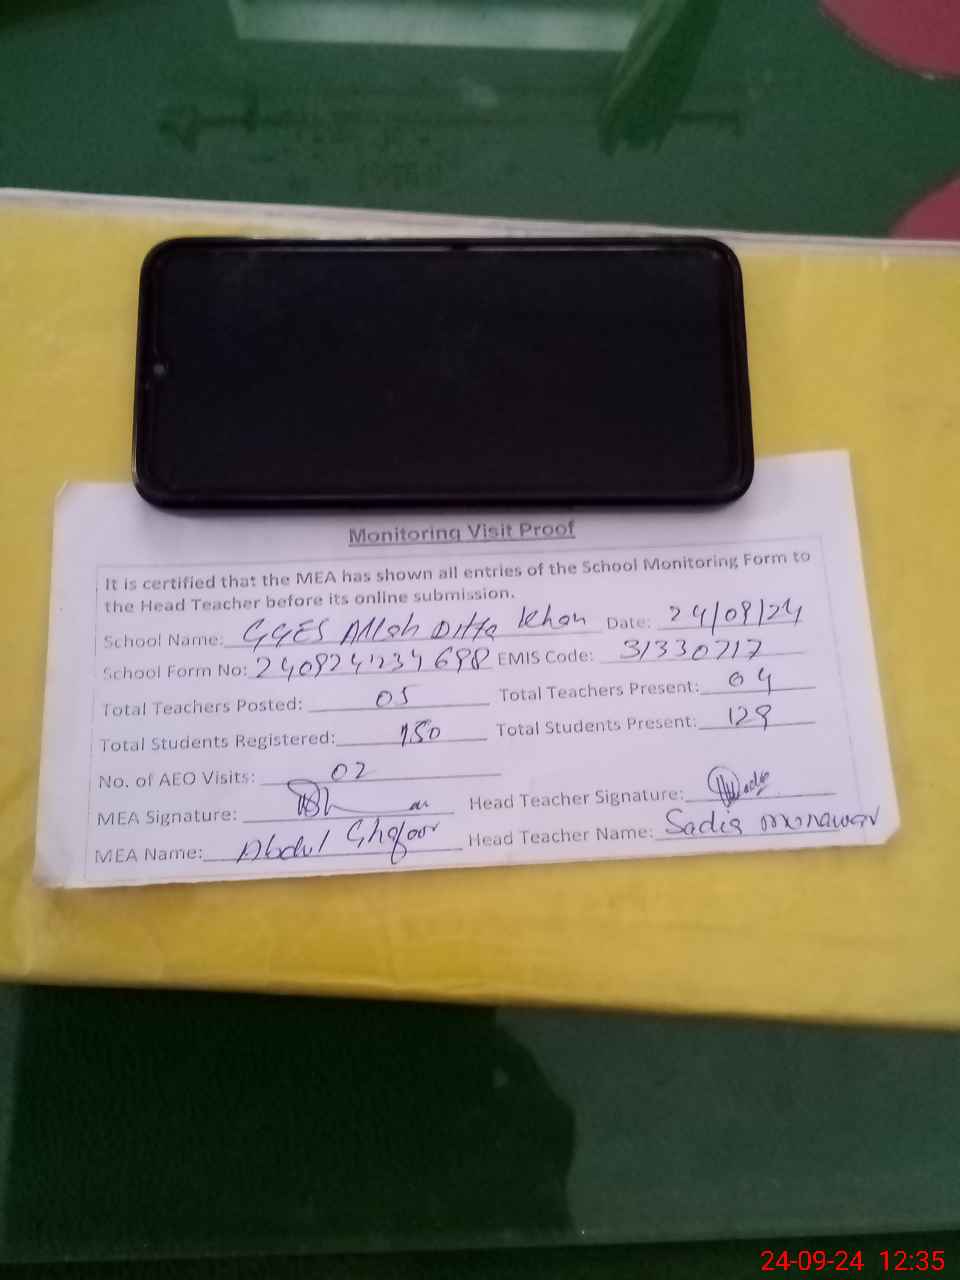 Monitoring Visit Proof
It is certified that the MEA has shown all entries of the School Monitoring Form to
the Head Teacher before its online submission.
School Name: GGES Allah Ditta Khan Date: 24/09/24
School Form No: 2409241234698 EMIS Code: 31330717
Total Teachers Posted: 05 Total Teachers Present: 04
Total Students Registered: 150 Total Students Present: 129
No. of AEO Visits: 02
MEA Signature: Head Teacher Signature:
MEA Name: Abdul Ghafoor Head Teacher Name: Sadia Munawar
24-09-24 12:35